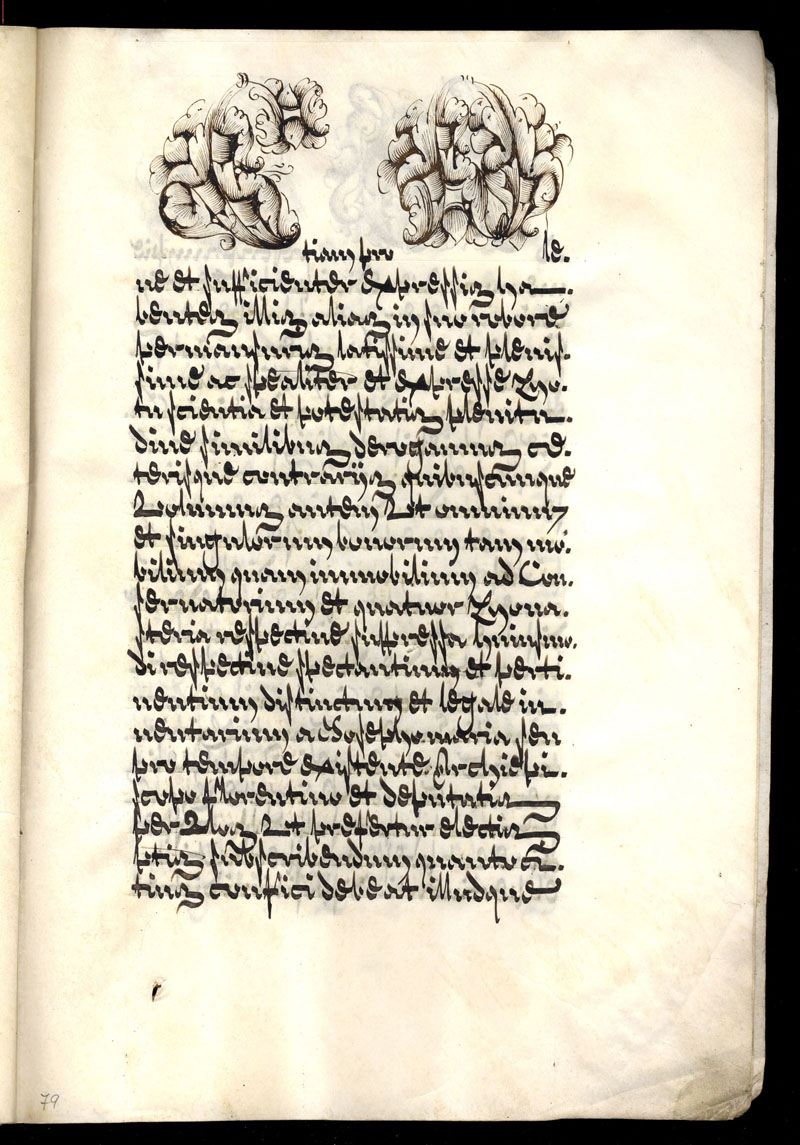 tiam pro ple.
ne et sufficienter expressis ha.
bentes illis alias in suo robore
permansuris latissime et plenis.
sime ac spealiter et expresse Mo.
tu scientia et potestatis plenitu.
dine similibus derogamus ce.
terisque contrariis quibuscunque
Volumus autem Ut omnium
et singulorum bonorum tam mo.
bilium quam immobilium ad Con.
servatorium et quatuor Mona.
steria respective suppressa huiusmo.
di respective spectantium et perti.
nentium distinctum et legale in.
ventarium a Josepho maria seu
pro tempore existente Archiepi.
scopo florentino et deputatis
per Vos Ut prefertur electis
ptis subscribendum quanto ci.
tius confici debeat illudque
79